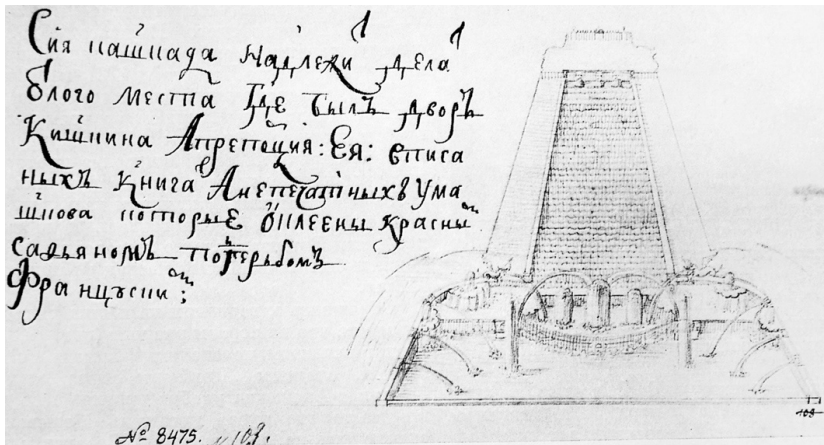 Сия кашкада надлежи дела
блого места Где былъ дворъ
Кишкина Апрепоция: Ея: вписа
ныхъ книга Анепечатныхъ Ума
шкова которые оклеены красны
садьяномъ погерьбомъ
Француски:
№ 8475. л 108.
108